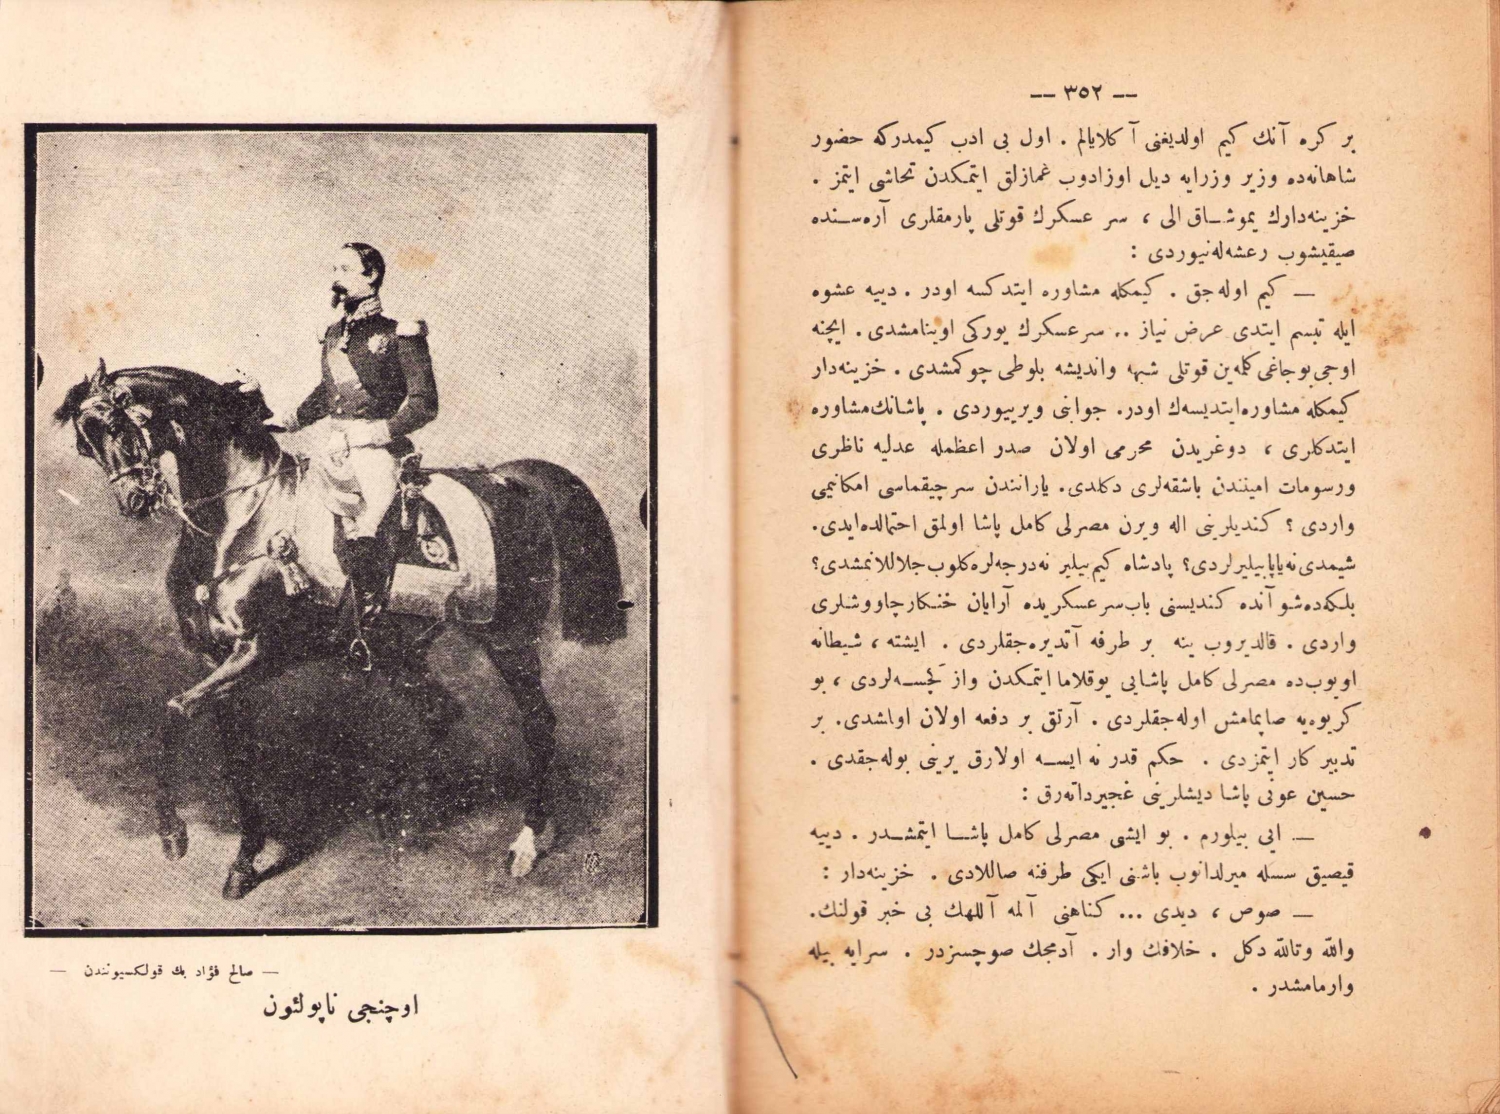 — ٣٥٢ —
بر کره آنك کیم اولدیغنی آ کلایالم . اول بی ادب کیمدرکه حضور
شاهانه‌ده وزیر وزرایه دیل اوزادوب غمازلق ایتمکدن تحاشی ایتمز .
خزینه‌دارك یموشـاق الی ، سر عسکرك قوتلی پارمقلری آره‌سـنده
صیقیشوب رعشه‌له‌نیوردی :
— کیم اوله‌جق . کیمکله مشاوره ایتدکسه اودر . دییه عشوه
ایله تبسم ایتدی عرض نیاز .. سرعسکرك یورکی اوینامشدی . ایچنه
اوجی‌بوجاغی کلمه‌ین قوتلی شبهه واندیشه بلوطی چوکمشدی . خزینه‌دار
کیمکله مشاوره‌ایتدیسه‌ك اودر. جوابنی ویرییوردی . پاشانك‌مشاوره
ایتدکلری ، دوغریدن محرمی اولان صدر اعظمله عدلیه ناظری
ورسومات امینندن باشقه‌لری دکلدی. یارانندن سرچیقماسی امکانیمی
واردی ؟ کندیلرینی اله ویرن مصرلی کامل پاشا اولمق احتمالده‌ایدی.
شیمدی‌نه‌یاپابیلیرلردی؟ پادشاه کیم‌بیلیر نه‌درجه‌لره‌کلوب‌جلاللانمشدی؟
بلکه‌ده‌شو آنده کندیسنی باب‌سرعسکریده آرایان خنـکارچاووشلری
واردی . قالدیروب ینه بر طرفه آتدیره‌جقلردی . ایشته ، شیطانه
اویوب‌ده مصرلی کامل پاشایی یوقلاما ایتمکدن واز کچسـه‌لردی ، بو
کریوه‌یه صاپمامش اوله‌جقلردی . آرتق بر دفعه اولان اولمشدی. بر
تدبیر کار ایتمزدی . حکم قدر نه ایسـه اولارق یرینی بوله‌جقدی .
حسین عونی پاشا دیشلرینی غجیرداته‌رق :
— ایی بیلورم . بو ایشی مصرلی کامل پاشـا ایتمشـدر . دییه
قیصیق سسله میرلدانوب باشنی ایکی طرفنه صاللادی . خزینه‌دار :
— صوص ، دیدی ... کناهنی آلمه آللهك بی خبر قولنك.
والله وتالله دکل . خلافك وار . آدمجك صوچسزدر . سرایه بیله
وارمامشدر .
— صالح فؤاد بك قولکسیونندن —
اوچنجی ناپولئون